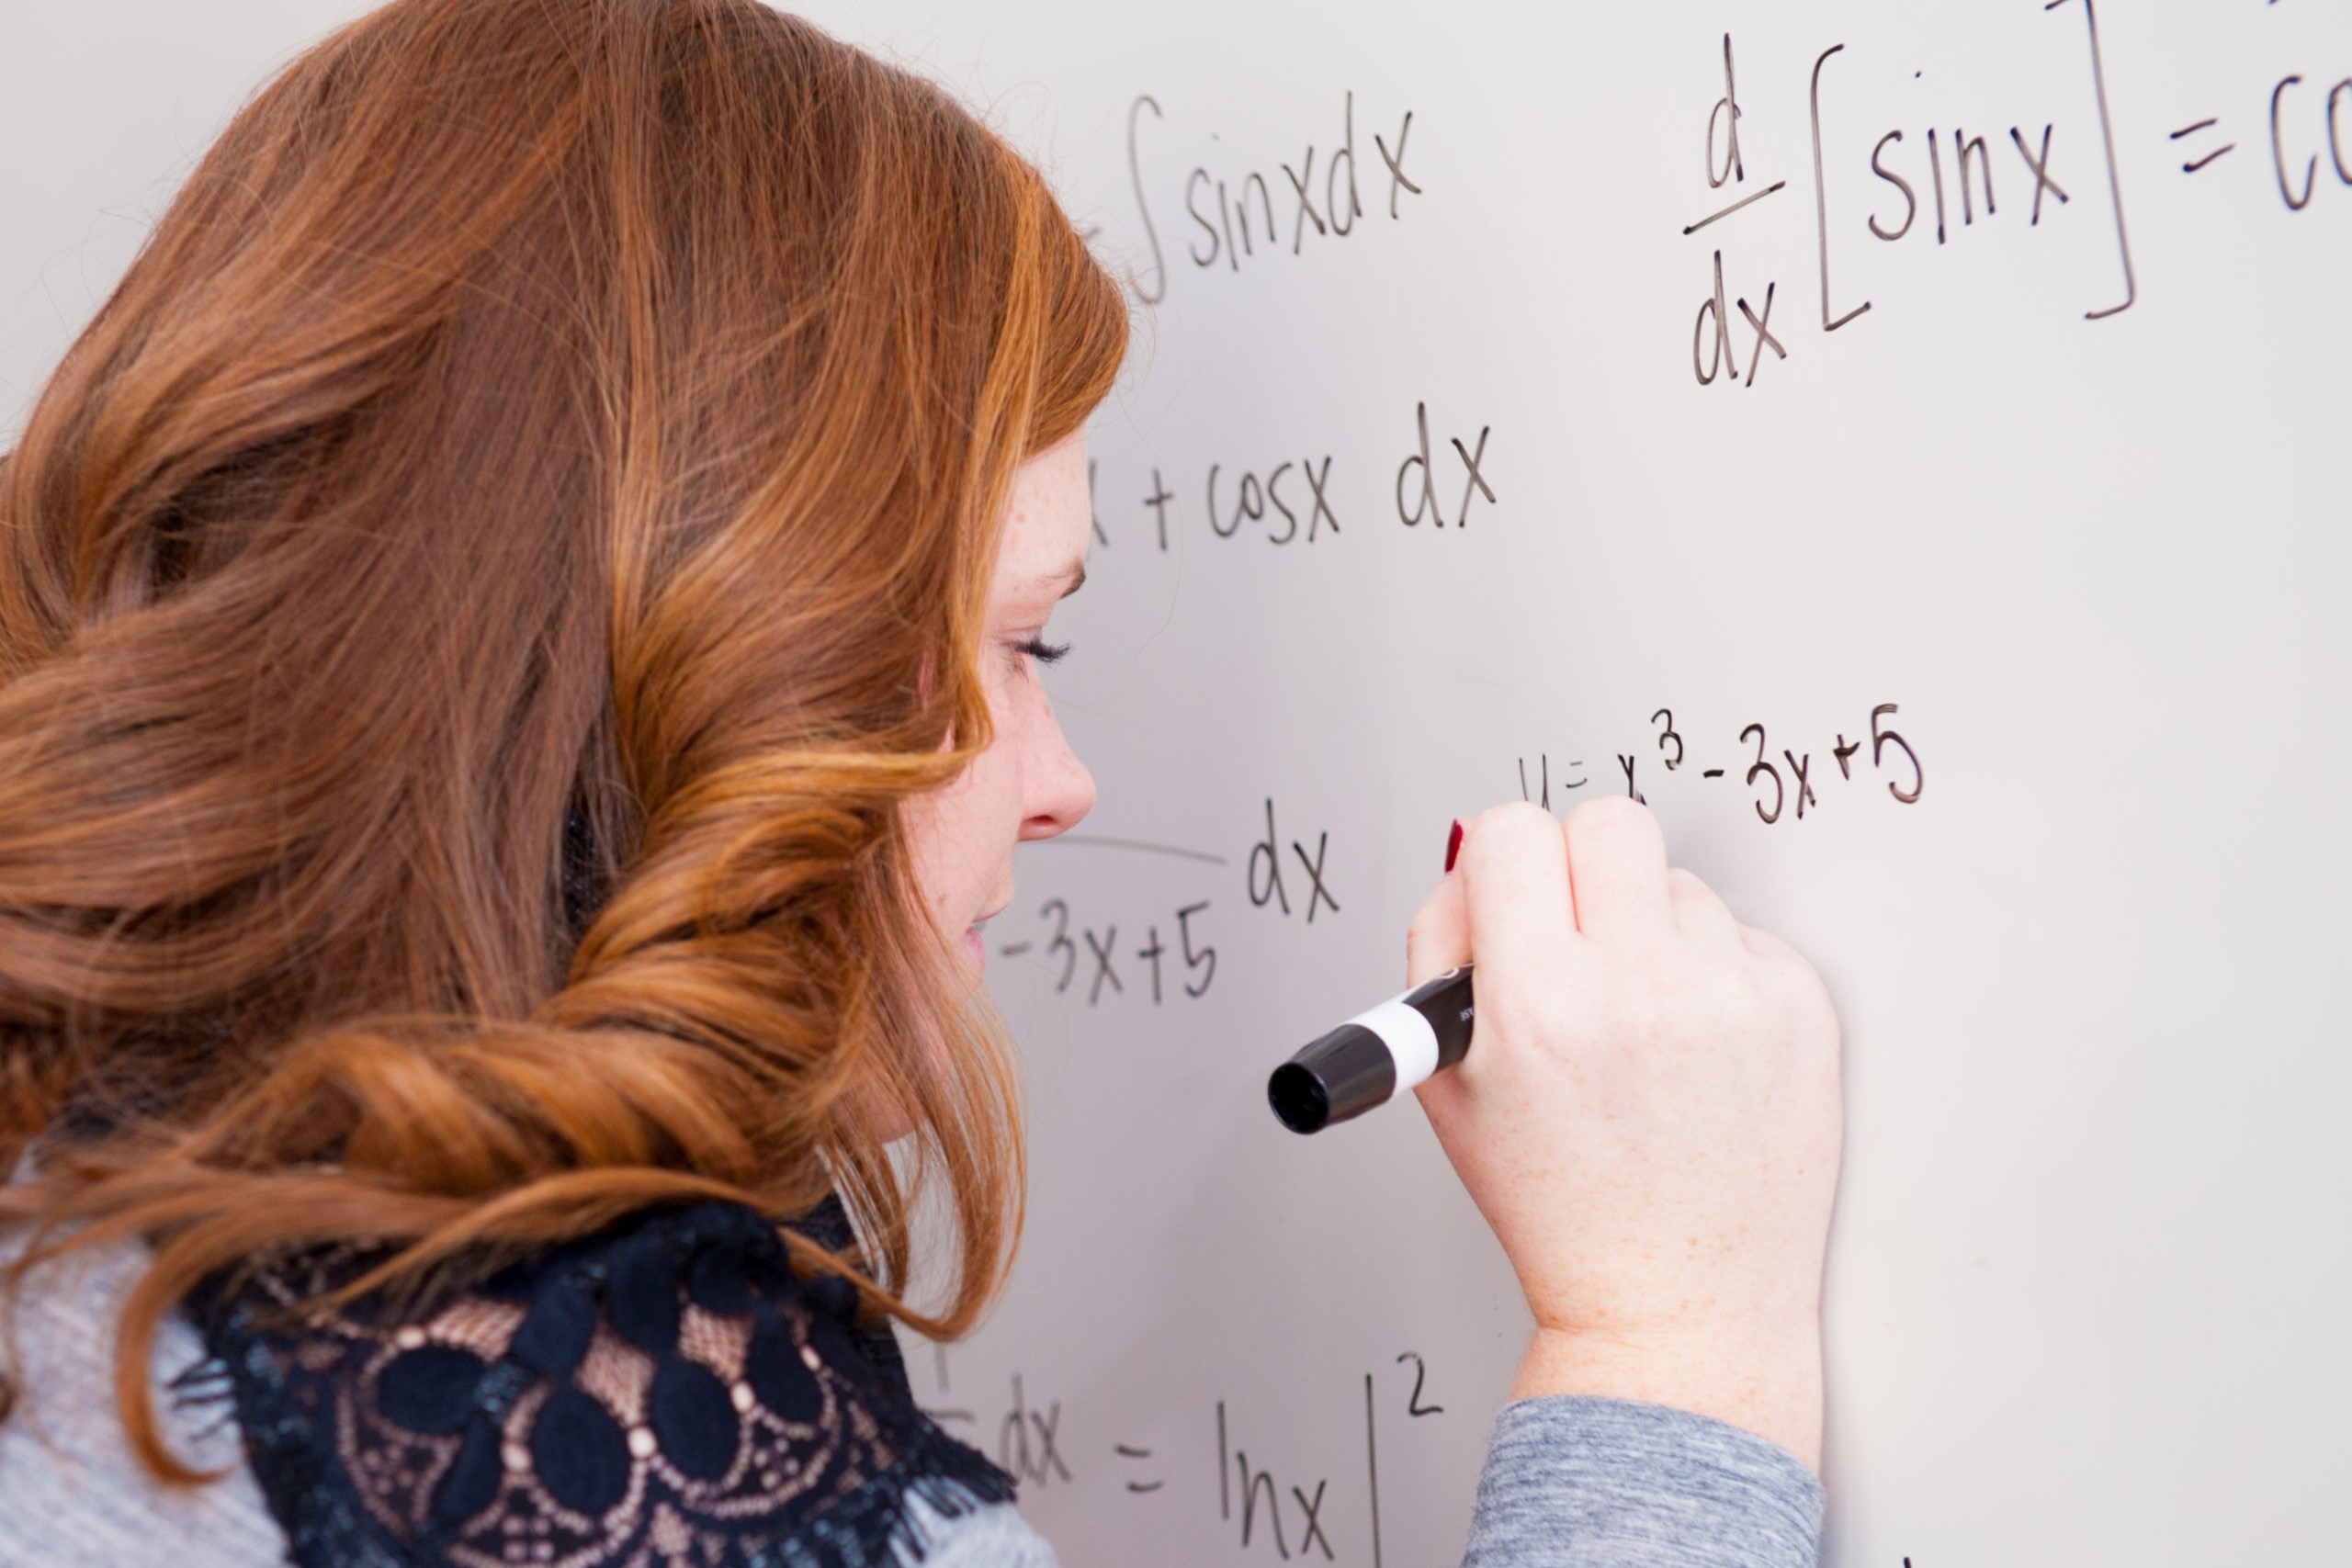 ∫ sinxdx
d/dx [sinx] = co
x + cosx dx
y = x³ - 3x + 5
dx
-3x+5
dx = lnx|²